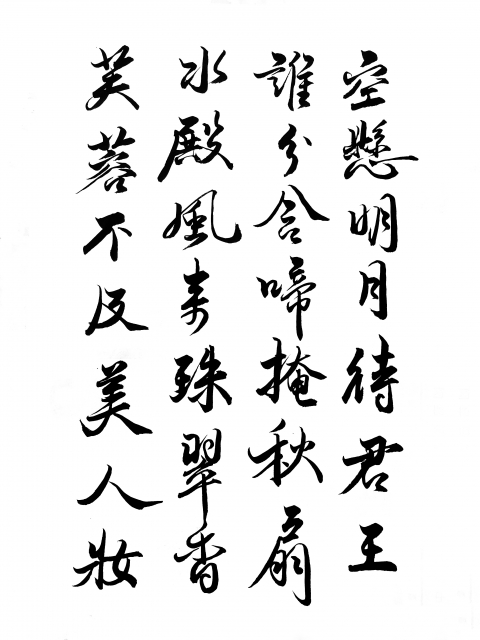 芙蓉不及美人妝
水殿風来珠翠香
誰分含啼掩秋扇
空懸明月待君王